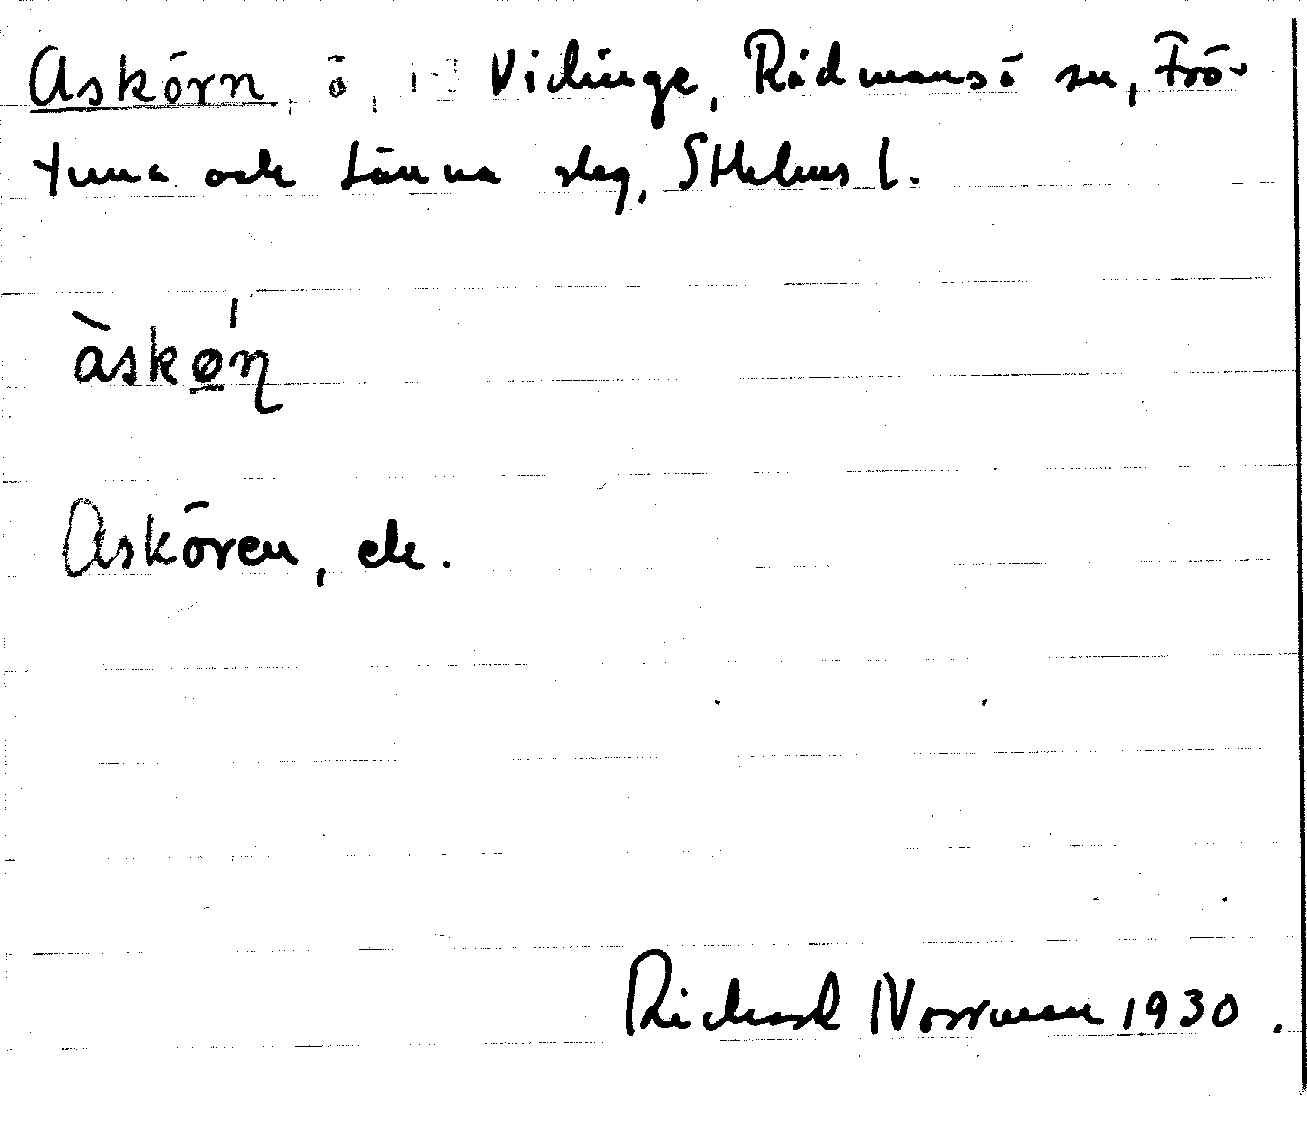 Askörn, ö, i Vidinge, Rådmansö sn, Frö-
tuna och Länna slag, Sthlms l.
àskø̲'ɳ
Askören, ek.
Richard Norrman 1930.